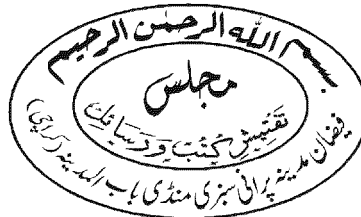 بسم اللہ الرحمٰن الرحیم
مجلس
تفتیشِ کُتُب و رسائل
فیضان مدینہ پرانی سبزی منڈی باب المدینہ (کراچی)